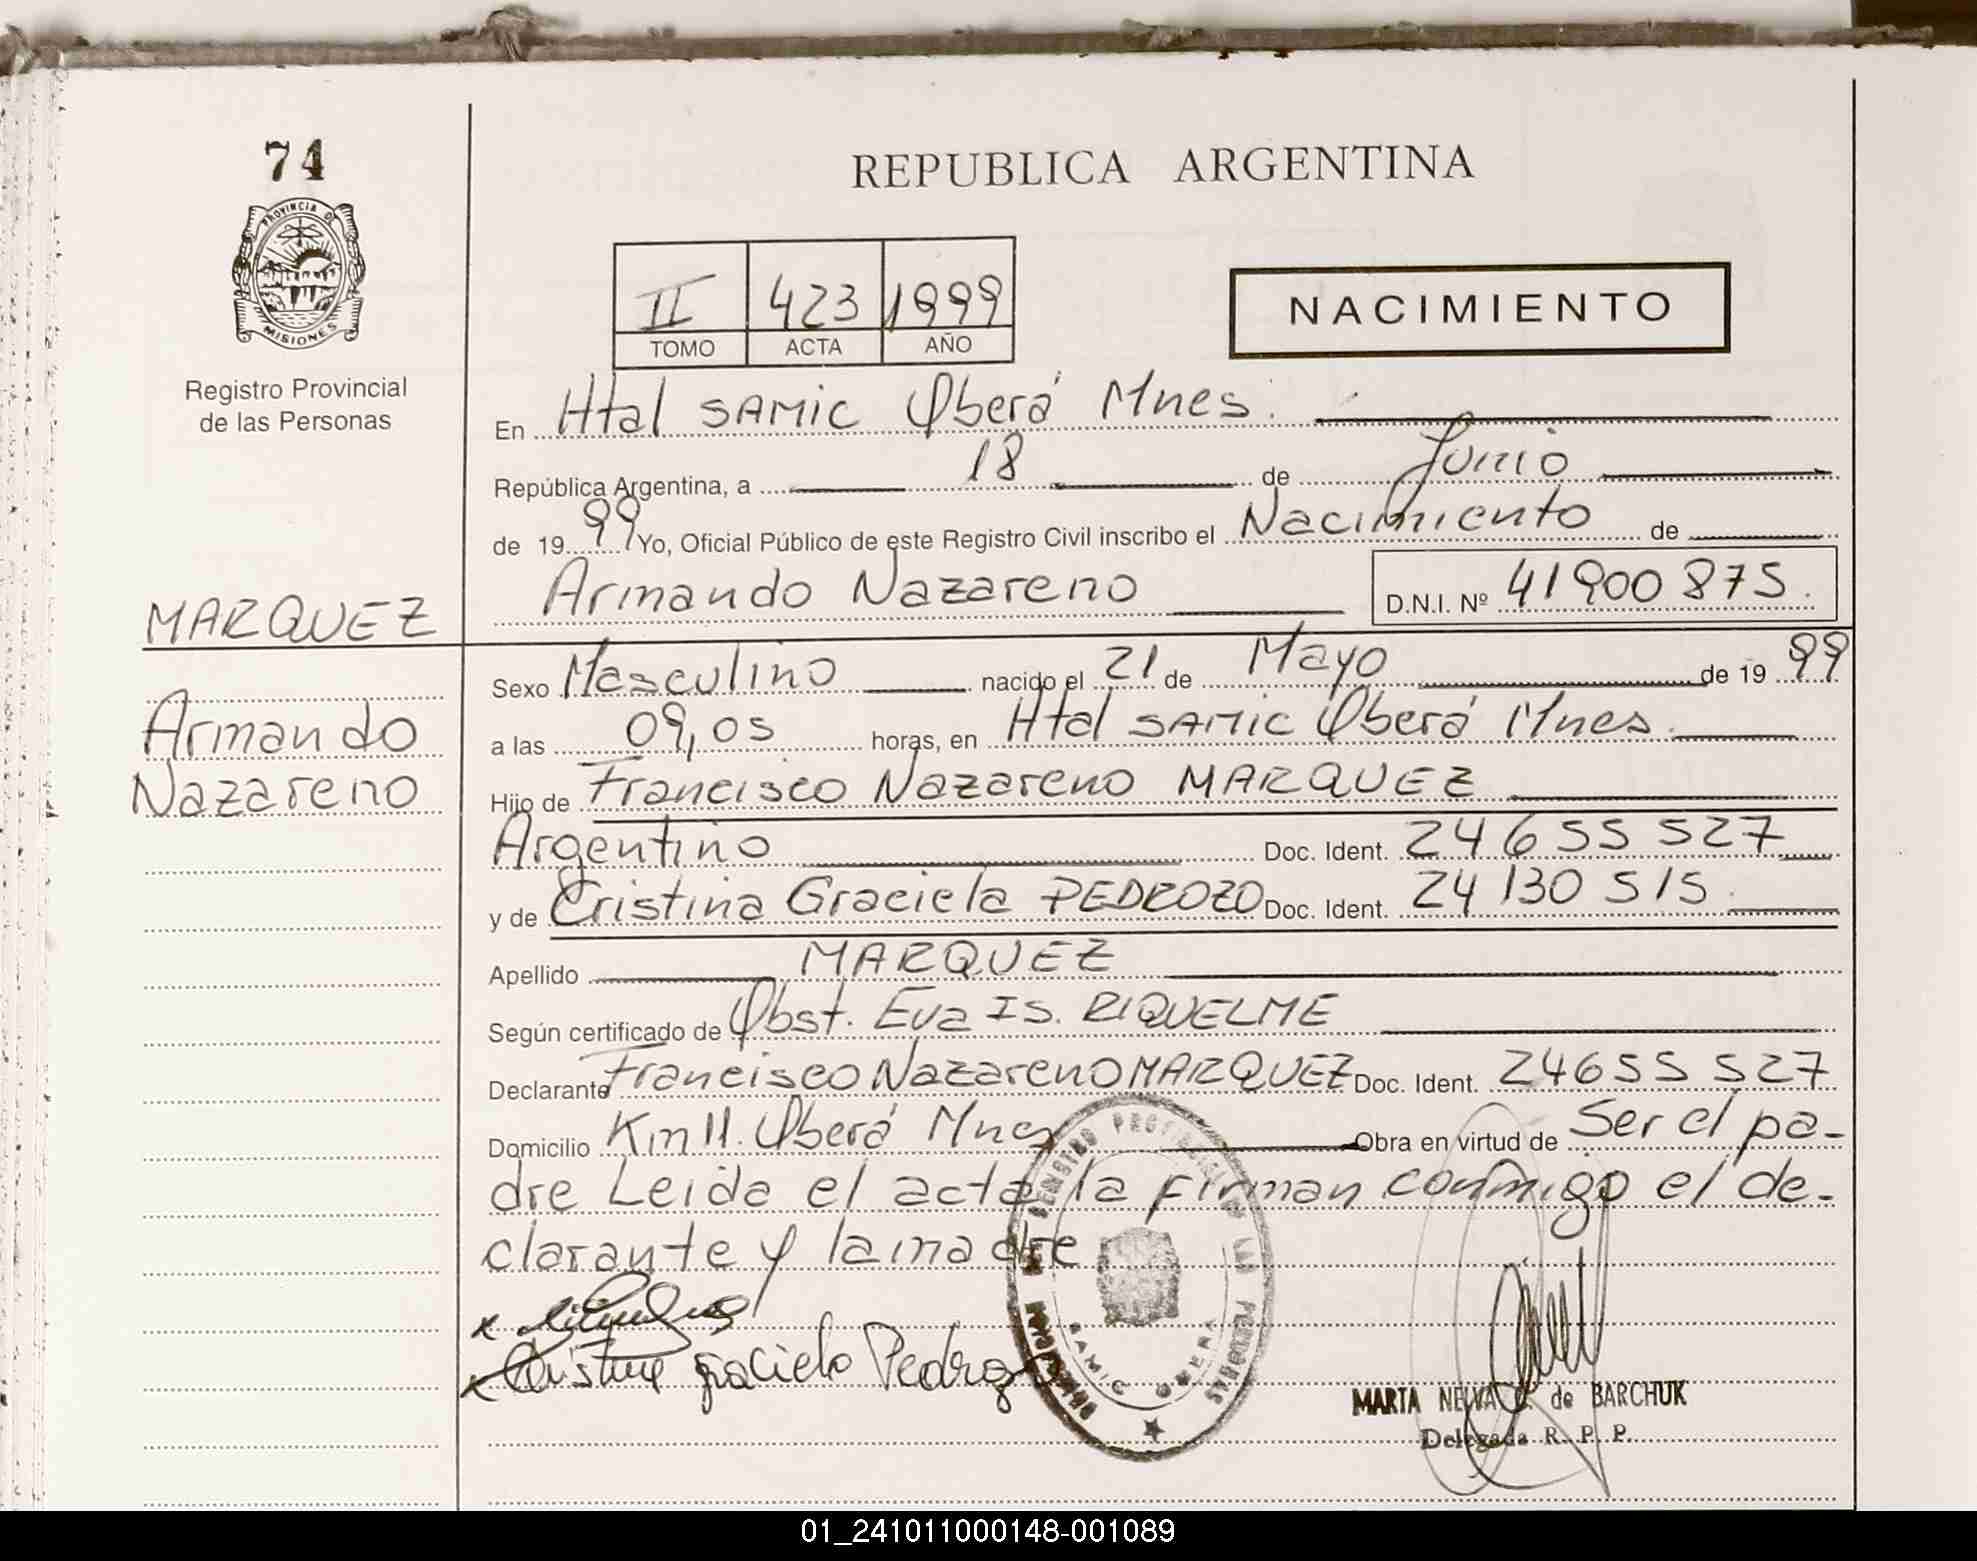 74
PROVINCIA DE
MISIONES
Registro Provincial
de las Personas
MARQUEZ
Armando
Nazareno
REPUBLICA ARGENTINA
II 423 1999
TOMO ACTA AÑO
NACIMIENTO
En Htal SAMIC Oberá Mnes.
República Argentina, a 18 de Junio
de 1999 Yo, Oficial Público de este Registro Civil inscribo el Nacimiento de
Armando Nazareno D.N.I. Nº 41900875.
Sexo Masculino nacido el 21 de Mayo de 1999
a las 09,05 horas, en Htal SAMIC Oberá Mnes.
Hijo de Francisco Nazareno MARQUEZ
Argentino Doc. Ident. 24655527
y de Cristina Graciela PEDROZO Doc. Ident. 24130515.
Apellido MARQUEZ
Según certificado de Obst. Eva Is. RIQUELME
Declarante Francisco Nazareno MARQUEZ Doc. Ident. 24655527
Domicilio Km 11. Oberá Mnes Obra en virtud de Ser el pa-
dre Leida el acta la firman conmigo el de-
clarante y la madre
x
x Cristina graciela Pedrozo
REGISTRO PROVINCIAL DE LAS PERSONAS
SAMIC OBERA
MARTA NELVA C. de BARCHUK
Delegada R. P. P.
01_241011000148-001089